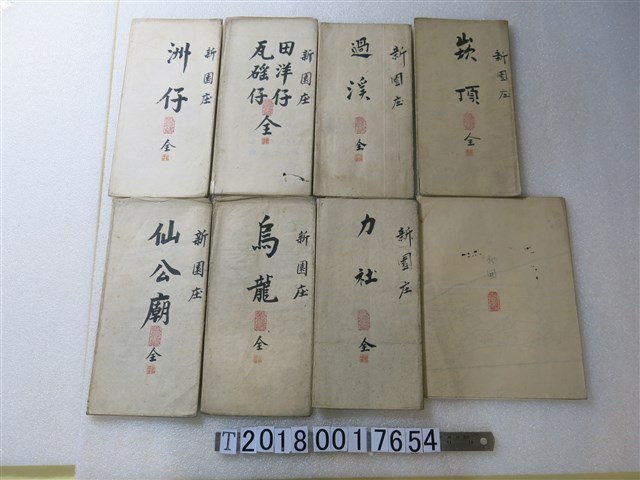 新園庄
洲仔
全
新園庄
田洋仔
瓦磘仔
全
新園庄
過溪
全
新園庄
崁頂
全
新園庄
仙公廟
全
新園庄
烏龍
全
新園庄
力社
全
T2018001 7654